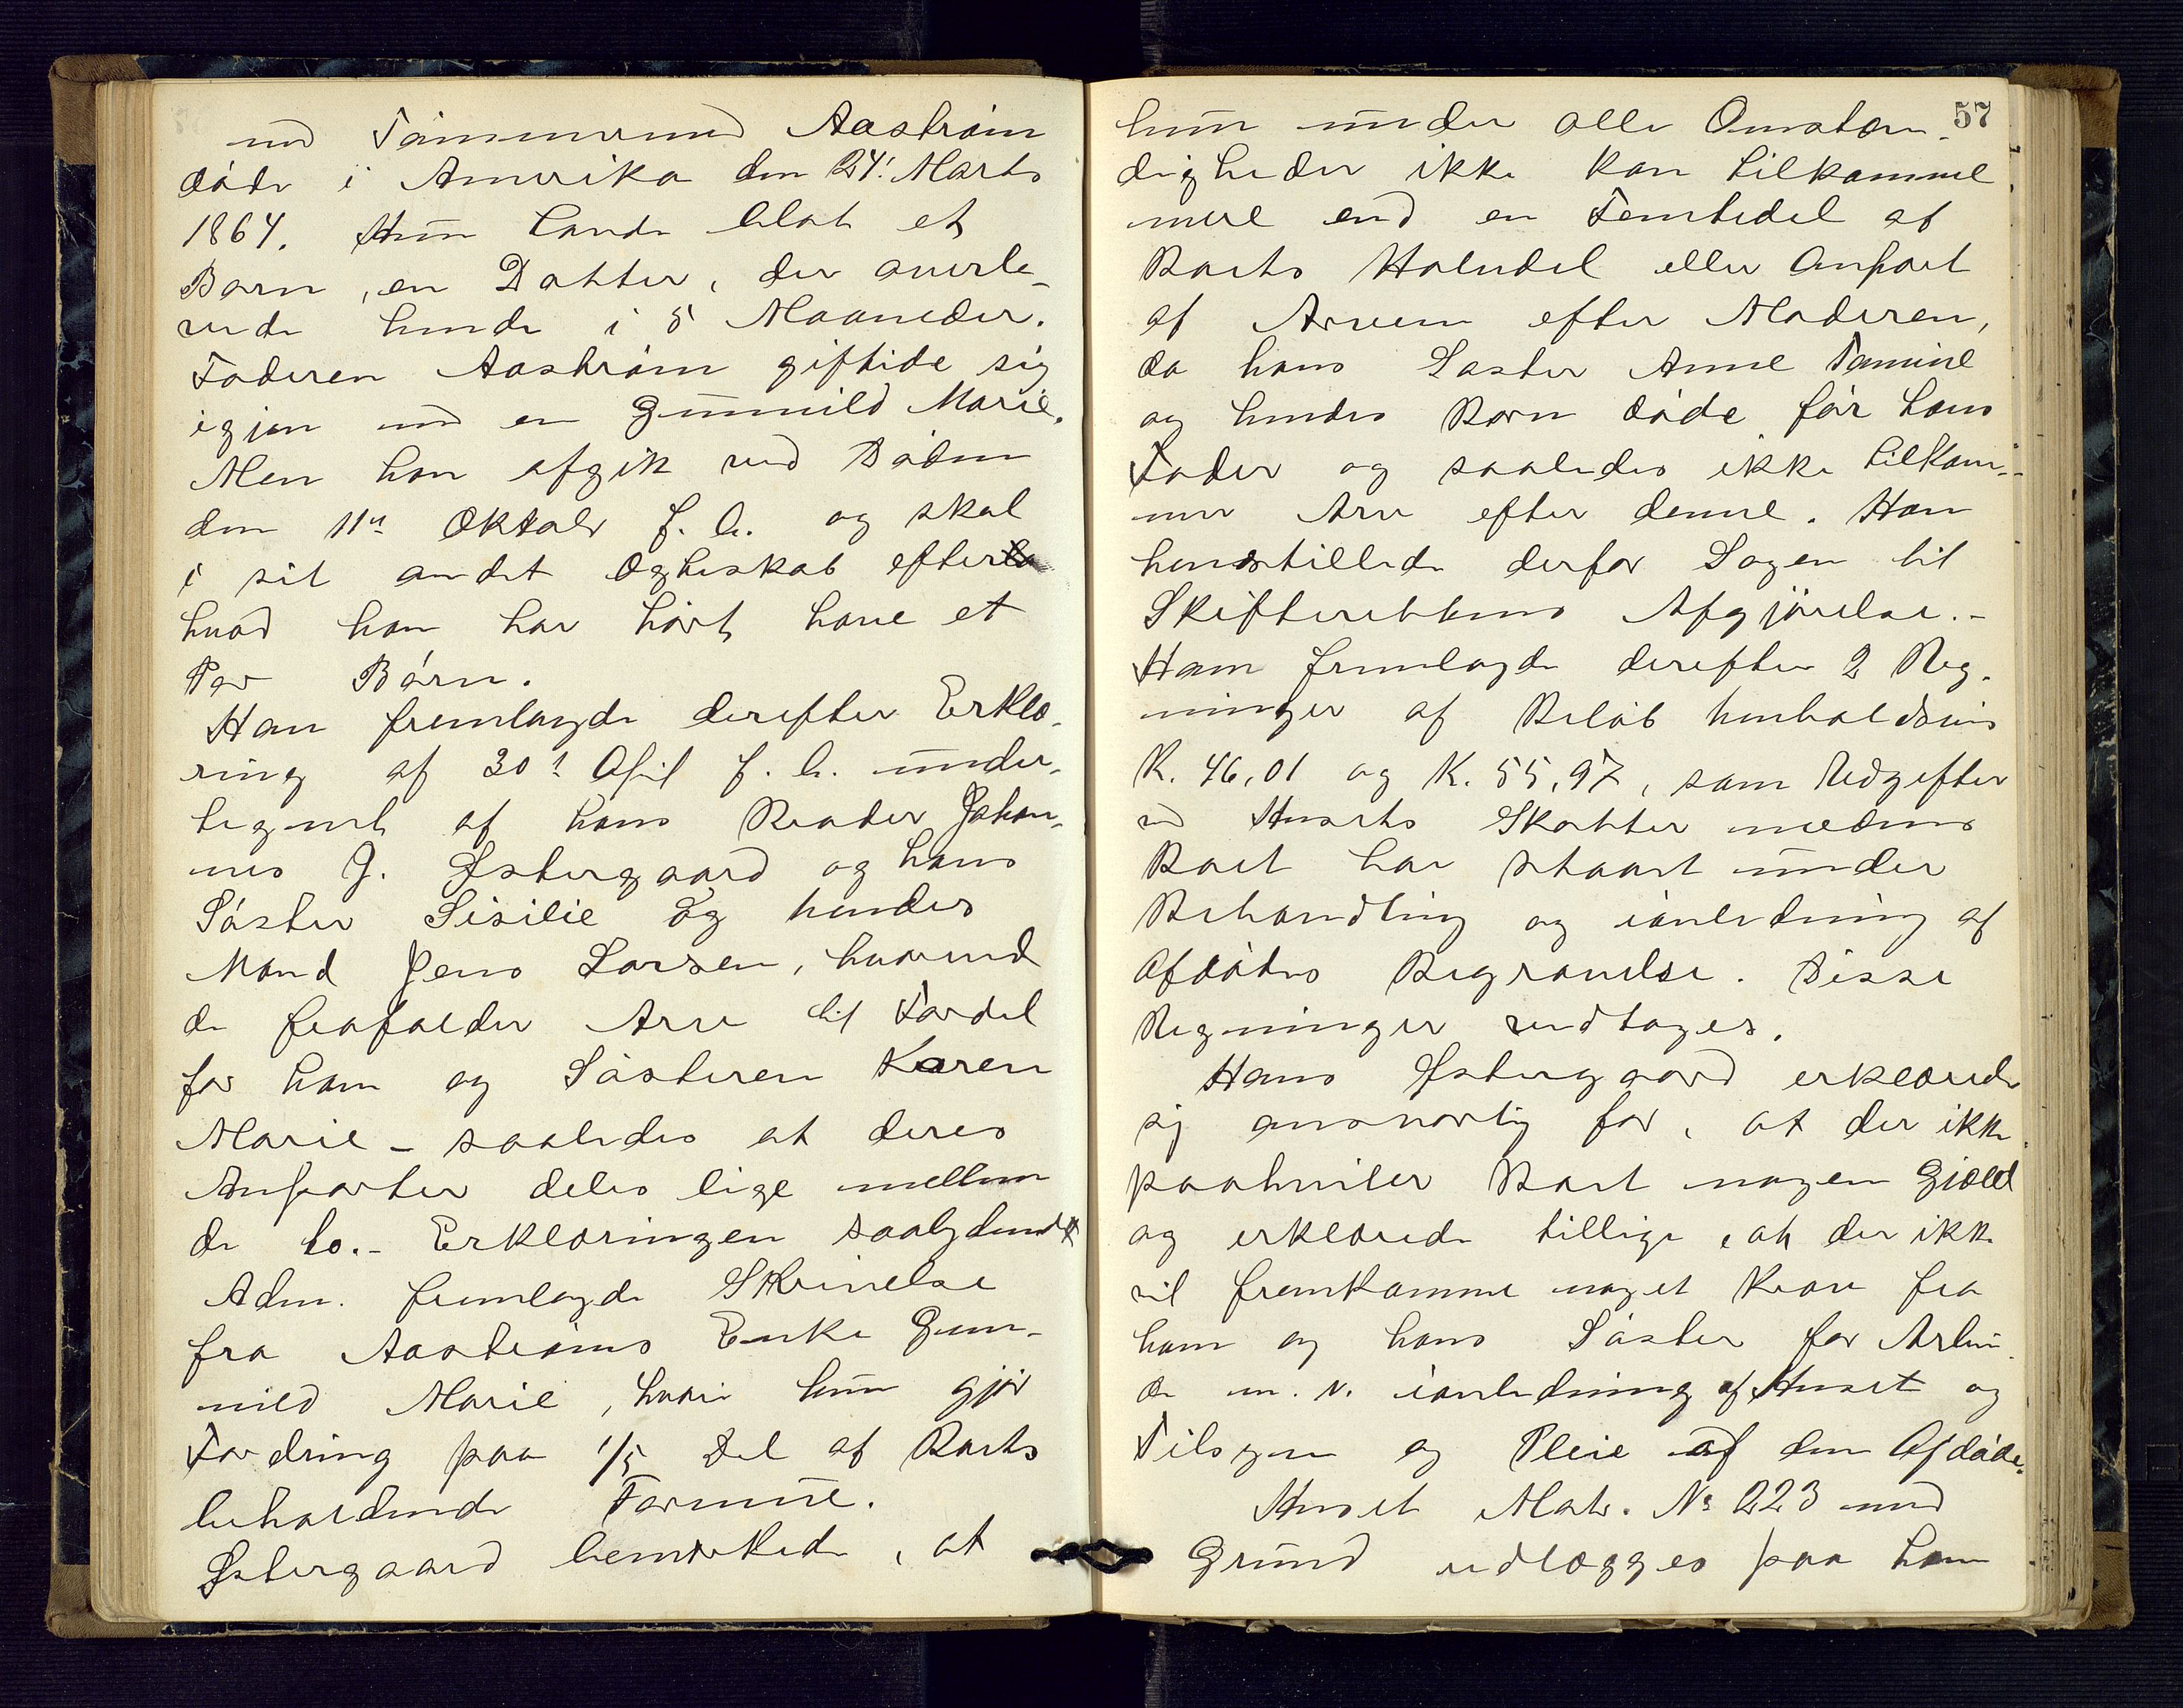 med Tømmermand Aaström
døde i Amerika den 24! Marts
1864. Hun havde blot et
Barn, en Datter, der overle-
vede hende i 5 Maaneder.
Faderen Aaström giftede sig
igjen med en Gunnild Marie.
Men han afgik ved Døden
den 11te Oktobr f. A. og skal
i sit andet Ægteskab efterla
hvad han har hørt have et
Par Børn.
Han fremlagde derefter Erklæ-
ring af 30! April f. A. under-
tegnet af hans Broder Johan-
nes J. Østergaard og hans
Søster Sisilie og hendes
Mand Jens Larsen, hvorved
de frafalder Arv til Fordel
for ham og Søsteren Karen
Marie - saaledes at deres
Anparter deles lige mellem
de to.- Erklæringen saalydende
Adm. fremlagde Skrivelse
fra Aaströms Enke Gun-
nild Marie, hvori hun gjør
Fordring paa 1/5 Del af Boets
beholdende Formue.
Østergaard bemærkede, at
57
hun under alle Omstæn-
digheder ikke kan tilkomme
mere end en Femtedel af
Boets Halvdel eller Anpart
af Arven efter Moderen,
da hans Søster Anne Tomine
og hendes Barn døde før hans
Fader og saaledes ikke tilkom-
mer Arv efter denne. Han
henstillede derfor Sagen til
Skifterettens Afgjørelse.-
Han fremlagde derefter 2 Reg-
ninger af Beløb henholdsvis
K. 46,01 og K. 55,97, som Udgifter
ved Husets Skatter medens
Boet har staaet under
Behandling og ianledning af
Afdødes Begravelse. Disse
Regninger vedtoges.
Hans Østergaard erklærede
sig ansvarlig for, at der ikke
paahviler Boet nogen Gjæld
og erklærede tillige, at der ikke
vil fremkomme noget Krav fra
ham og hans Søster for Arbei-
de m. v. ianledning af Huset og
Tilsyn og Pleie af den Afdøde.
Huset Matr. No 223 med
Grund udlægges paa ham